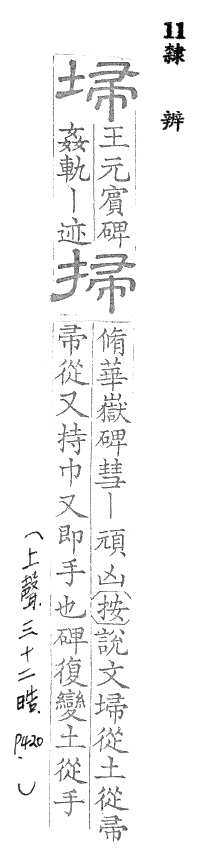 11隸 辨
埽
王元賓碑
姦軌ー迹
掃
脩華嶽碑彗ー頑凶(按)說文埽從土從帚
帚從又持巾又即手也碑復變土從手
(上聲三十二晧 p420.)